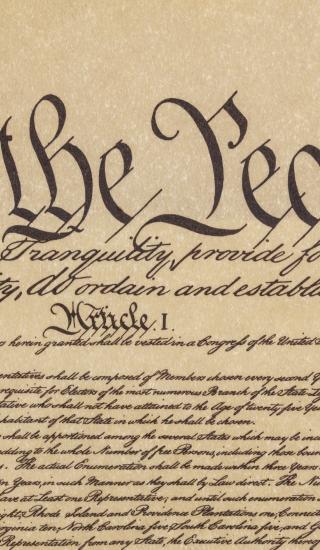 the Peo
Tranquility, provide fo
ty, do ordain and establis
Article. I.
s herein granted shall be vested in a Congress of the United S
entatives shall be composed of Members chosen every second Y
requisite for Electors of the most numerous Branch of the State Le
tative who shall not have attained to the Age of twenty five Year
habitant of that State in which he shall be chosen.
shall be apportioned among the several States which may be inclu
adding to the whole Number of free Persons, including those boun
. The actual Enumeration shall be made within three Years
n Years, in such Manner as they shall by Law direct. The Nu
ave at Least one Representative; and until such enumeration
ight, Rhode Island and Providence Plantations one, Connect
rginia ten, North Carolina five, South Carolina five, and Ge
Representation from any State, the Executive Authority thereof